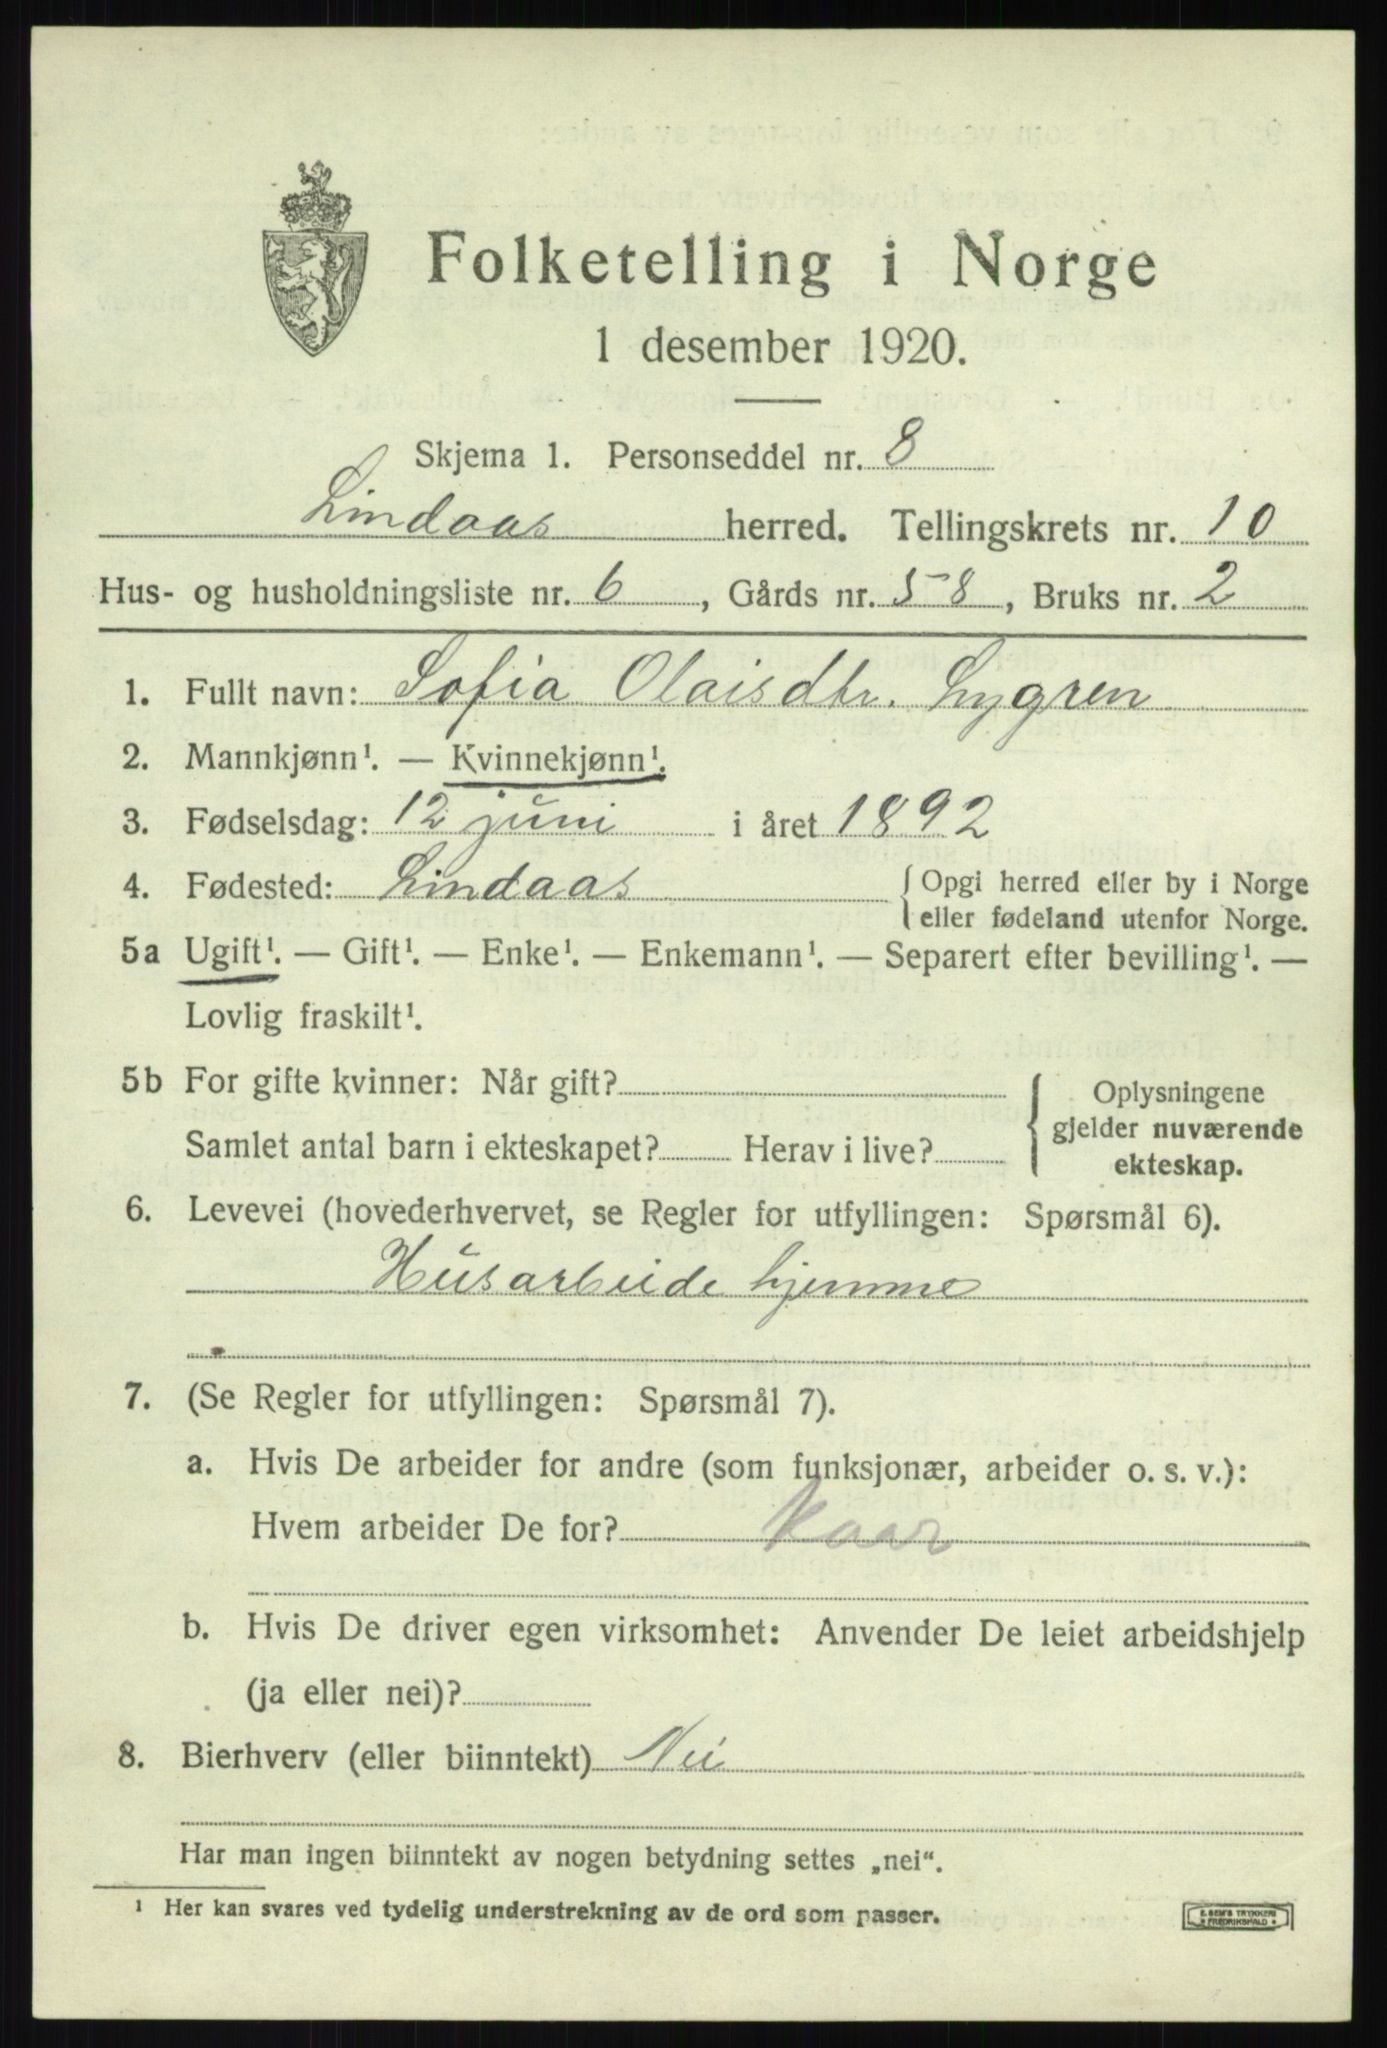 Folketelling i Norge
1 desember 1920.
Skjema 1. Personseddel nr. 8
Lindaas herred. Tellingskrets nr. 10
Hus- og husholdningsliste nr. 6, Gårds nr. 58, Bruks nr. 2
1. Fullt navn: Sofia Olaisdtr. Lygren
2. Mannkjønn¹. — Kvinnekjønn¹.
3. Fødselsdag: 12 juni i året 1892
4. Fødested: Lindaas { Opgi herred eller by i Norge
eller fødeland utenfor Norge.
5a Ugift¹. — Gift¹. — Enke¹. — Enkemann¹. — Separert efter bevilling¹. —
Lovlig fraskilt¹.
5b For gifte kvinner: Når gift? { Oplysningene
gjelder nuværende
Samlet antal barn i ekteskapet? Herav i live?
ekteskap.
6. Levevei (hovederhvervet, se Regler for utfyllingen: Spørsmål 6).
Husarbeide hjemme
7. (Se Regler for utfyllingen: Spørsmål 7).
a. Hvis De arbeider for andre (som funksjonær, arbeider o. s. v.):
Hvem arbeider De for?
b. Hvis De driver egen virksomhet: Anvender De leiet arbeidshjelp
(ja eller nei)?
8. Bierhverv (eller biinntekt) Nei
Har man ingen biinntekt av nogen betydning settes „nei“.
¹ Her kan svares ved tydelig understrekning av de ord som passer.
E. SEM'S TRYKKERI
FREDRIKSHALD